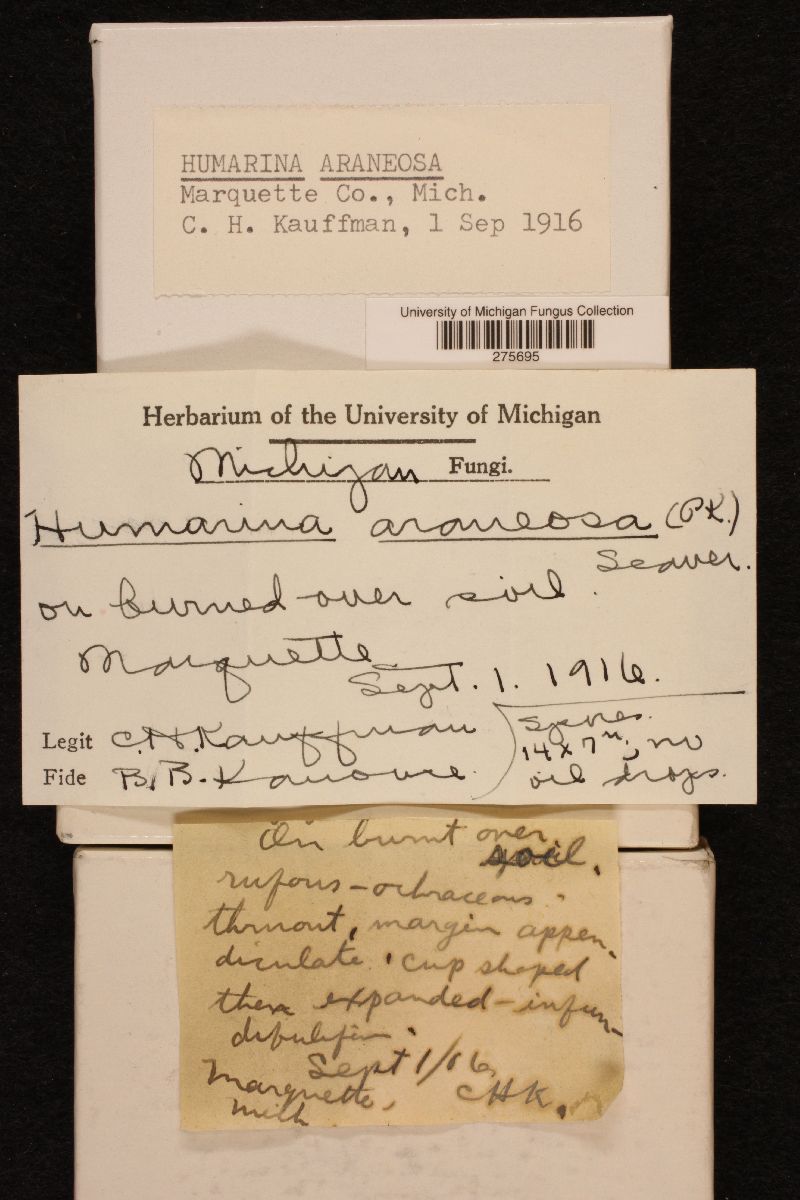 HUMARINA ARANEOSA
Marquette Co., Mich.
C. H. Kauffman, 1 Sep 1916
University of Michigan Fungus Collection
275695
Herbarium of the University of Michigan
Michigan Fungi.
Humarina araneosa (Pk.)
Seaver.
on burned-over soil.
Marquette
Sept. 1. 1916.
Legit C.H. Kauffman
Fide B.B. Kanouse
Spores.
14 x 7 u; no
oil drops.
On burnt over
soil.
rufous-ochraceous
thruout, margin appen-
diculate, cup shaped
then expanded-infun-
dibulifm.
Sept 1/16
Marquette, CHK.
Mich